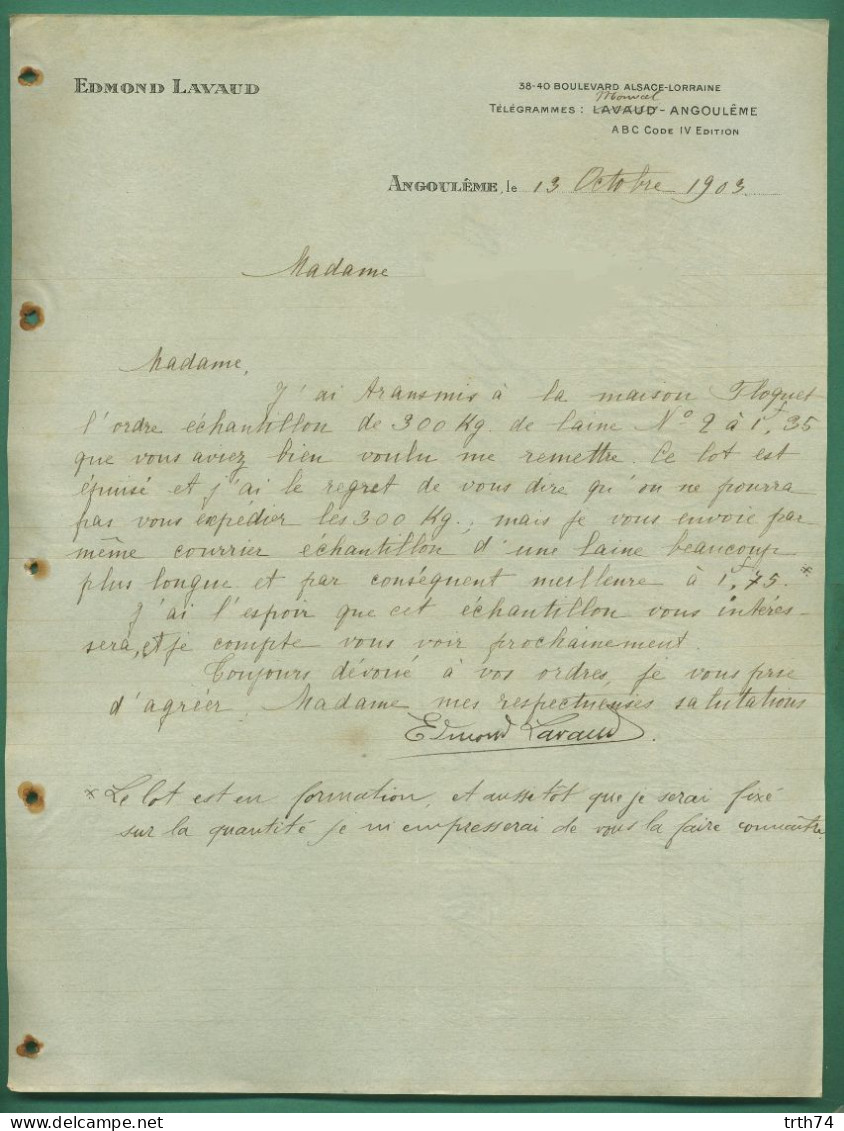 EDMOND LAVAUD
38-40 BOULEVARD ALSACE-LORRAINE
Monveil
TÉLÉGRAMMES : LAVAUD - ANGOULÊME
ABC CODE IV EDITION
ANGOULÊME, le 13 Octobre 1903
Madame
Madame,
J'ai transmis à la maison Floquet
l'ordre échantillon de 300 Kg. de laine No 2 à 1f,35
que vous aviez bien voulu me remettre. Ce lot est
épuisé et j'ai le regret de vous dire qu'on ne pourra
pas vous expédier les 300 Kg., mais je vous envoie par
même courrier échantillon d'une laine beaucoup
plus longue et par conséquent meilleure à 1f,75. *
J'ai l'espoir que cet échantillon vous intéres-
sera, et je compte vous voir prochainement.
Toujours dévoué à vos ordres, je vous prie
d'agréer, Madame mes respectueuses salutations
Edmond Lavaud.
* Le lot est en formation, et aussitot que je serai fixé
sur la quantité je m'empresserai de vous la faire connaître.
trth74